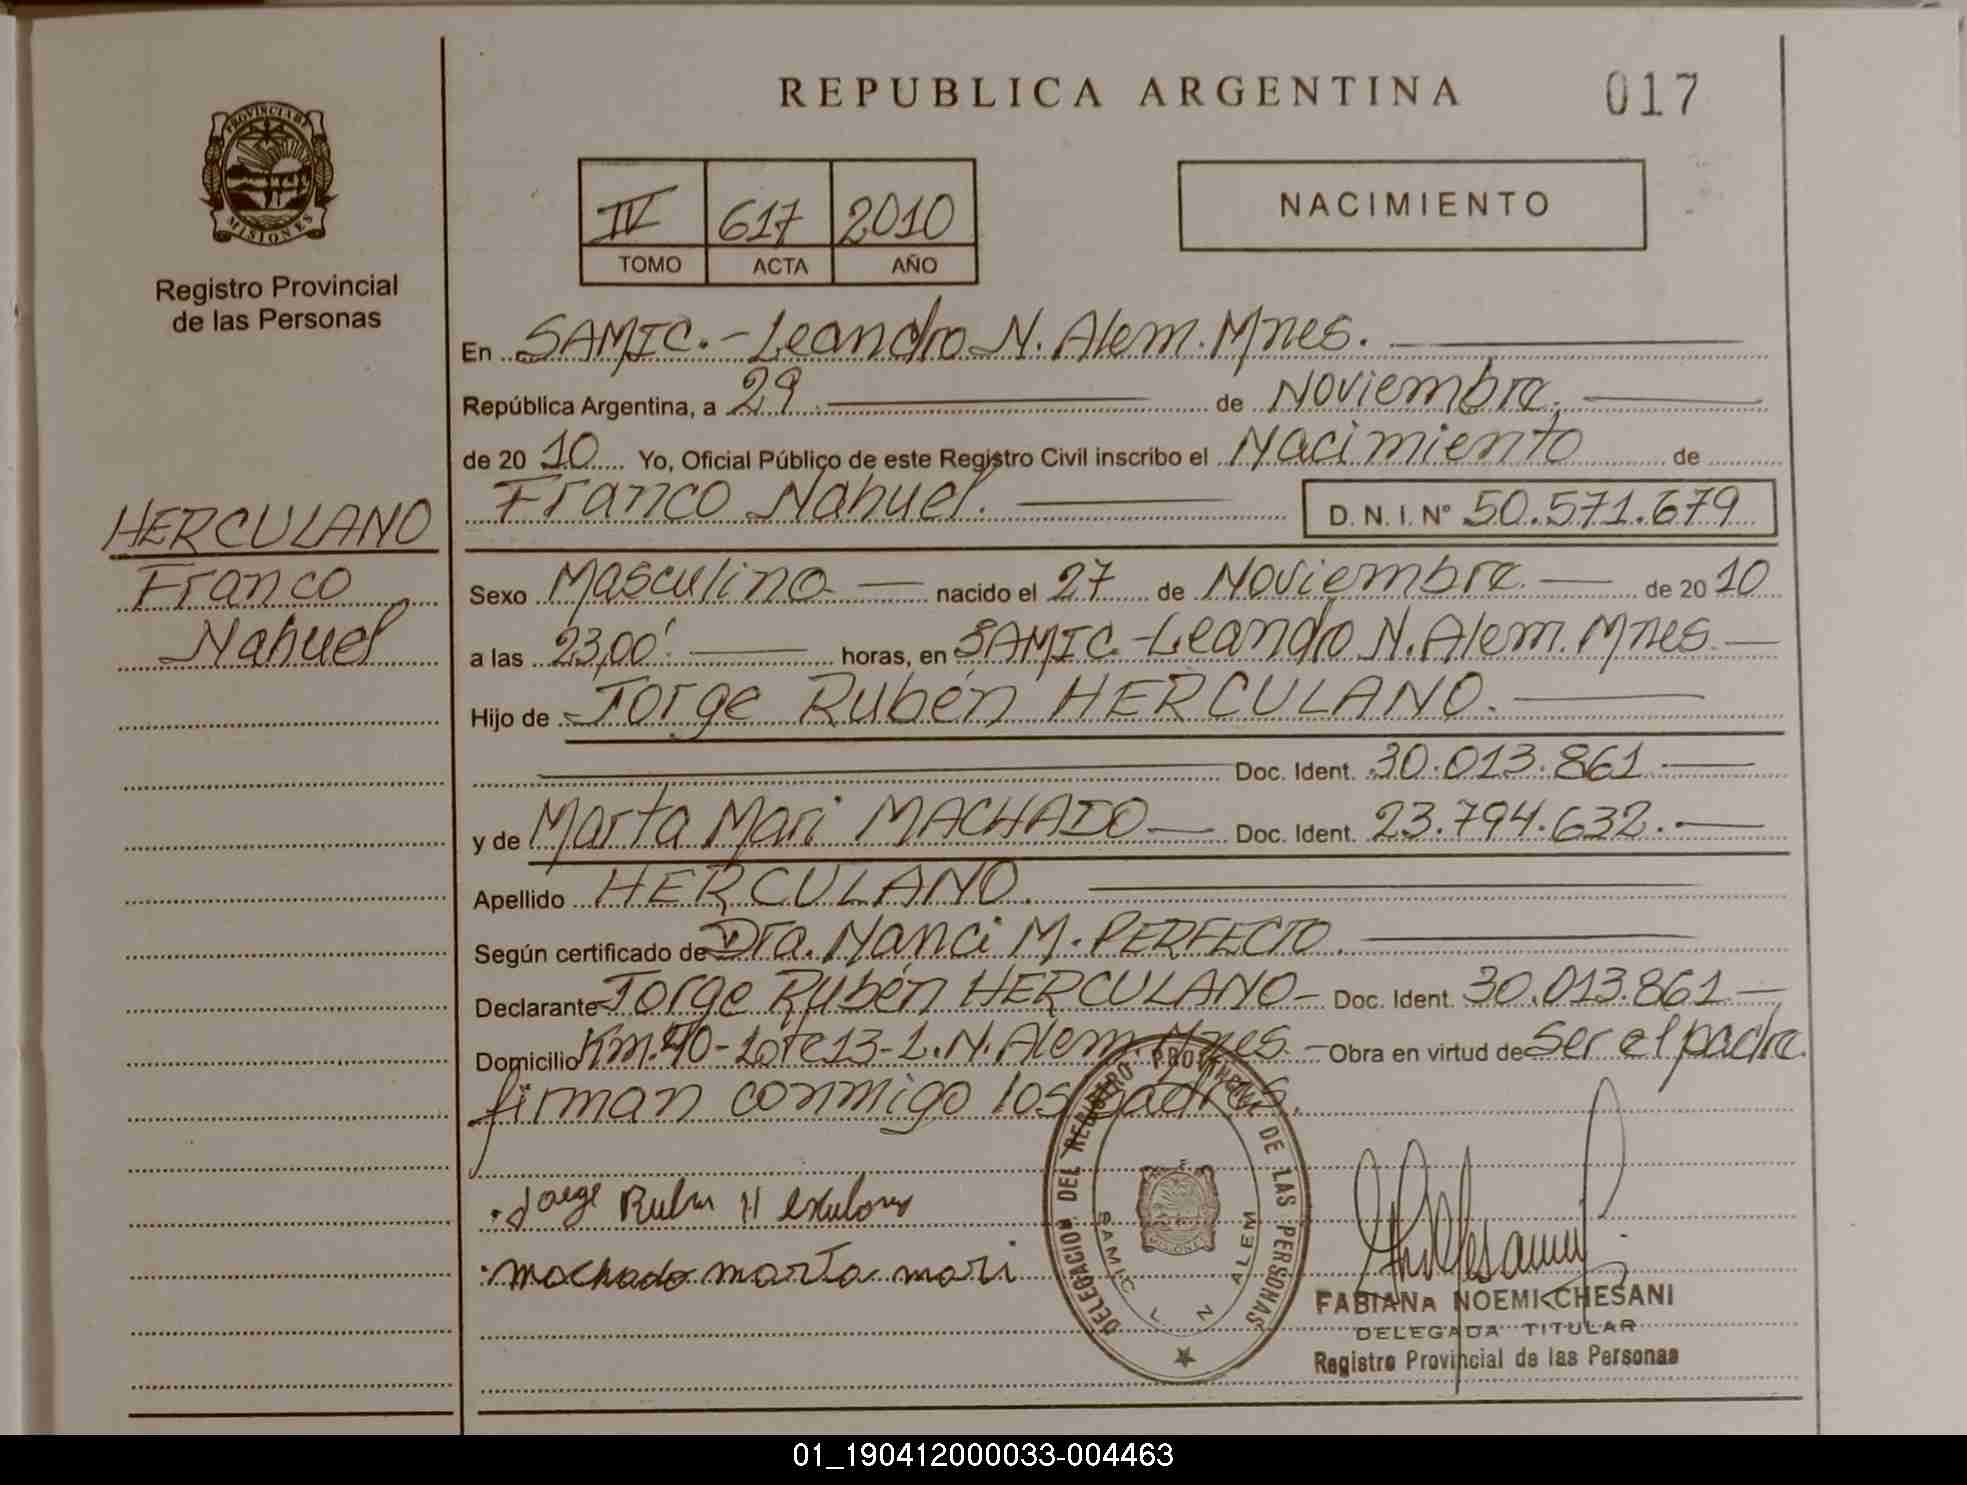 REPUBLICA ARGENTINA
017
PROVINCIA DE
MISIONES
Registro Provincial
de las Personas
IV 617 2010
TOMO ACTA AÑO
NACIMIENTO
En SAMIC.-Leandro N. Alem. Mnes.
República Argentina, a 29 de Noviembre,
de 20 10 Yo, Oficial Público de este Registro Civil inscribo el Nacimiento de
Franco Nahuel. D. N. I. N° 50.571.679
HERCULANO
Franco
Nahuel
Sexo Masculino nacido el 27 de Noviembre de 20 10
a las 23,00' horas, en SAMIC.-Leandro N. Alem. Mnes.
Hijo de Jorge Rubén HERCULANO.
Doc. Ident. 30.013.861
y de Marta Mari MACHADO Doc. Ident. 23.794.632.
Apellido HERCULANO.
Según certificado de Dra. Nanci M. PERFECTO.
Declarante Jorge Rubén HERCULANO Doc. Ident. 30.013.861
Domicilio Km.40-Lote 13-L.N. Alem. Mnes. Obra en virtud de Ser el padre.
firman conmigo los padres.
Jorge Ruben
machado marta mari
DELEGACION DEL REGISTRO PROVINCIAL DE LAS PERSONAS
SAMIC L N ALEM
MISIONES
FABIANA NOEMI CHESANI
DELEGADA TITULAR
Registro Provincial de las Personas
01_190412000033-004463